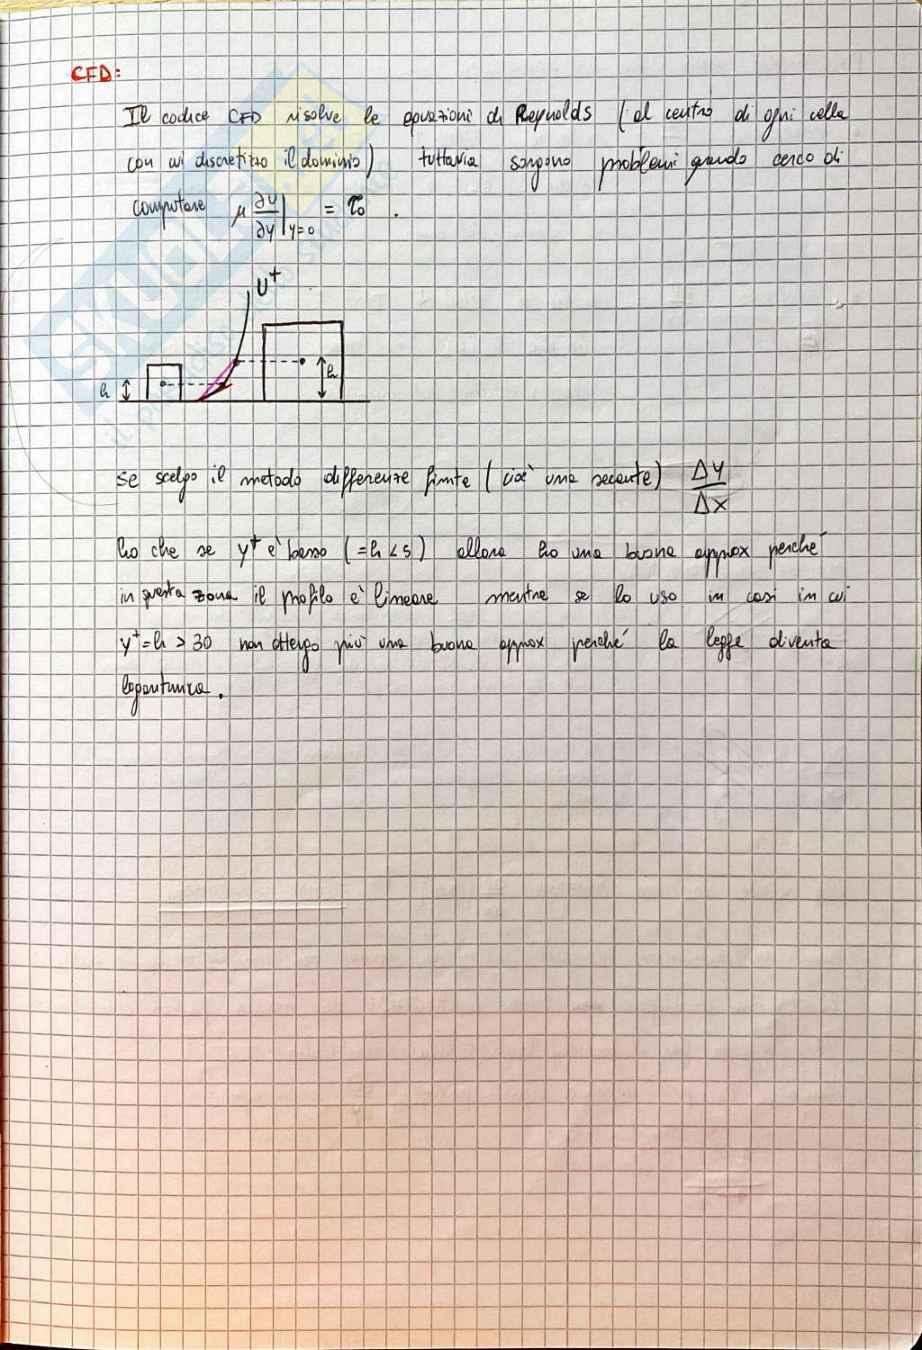 CFD:
Il codice CFD risolve le equazioni di Reynolds (al centro di ogni cella
con cui discretizzo il dominio) tuttavia sorgono problemi quando cerco di
computare μ ∂U/∂y |y=0 = τ₀ .
U⁺
h
h
Se scelgo il metodo differenze finite (cioè una secante) ΔY/ΔX
ho che se y⁺ è basso (=h<5) allora ho una buona approx perché
in questa zona il profilo è lineare mentre se lo uso in casi in cui
y⁺=h>30 non ottengo più una buona approx perché la legge diventa
logaritmica.